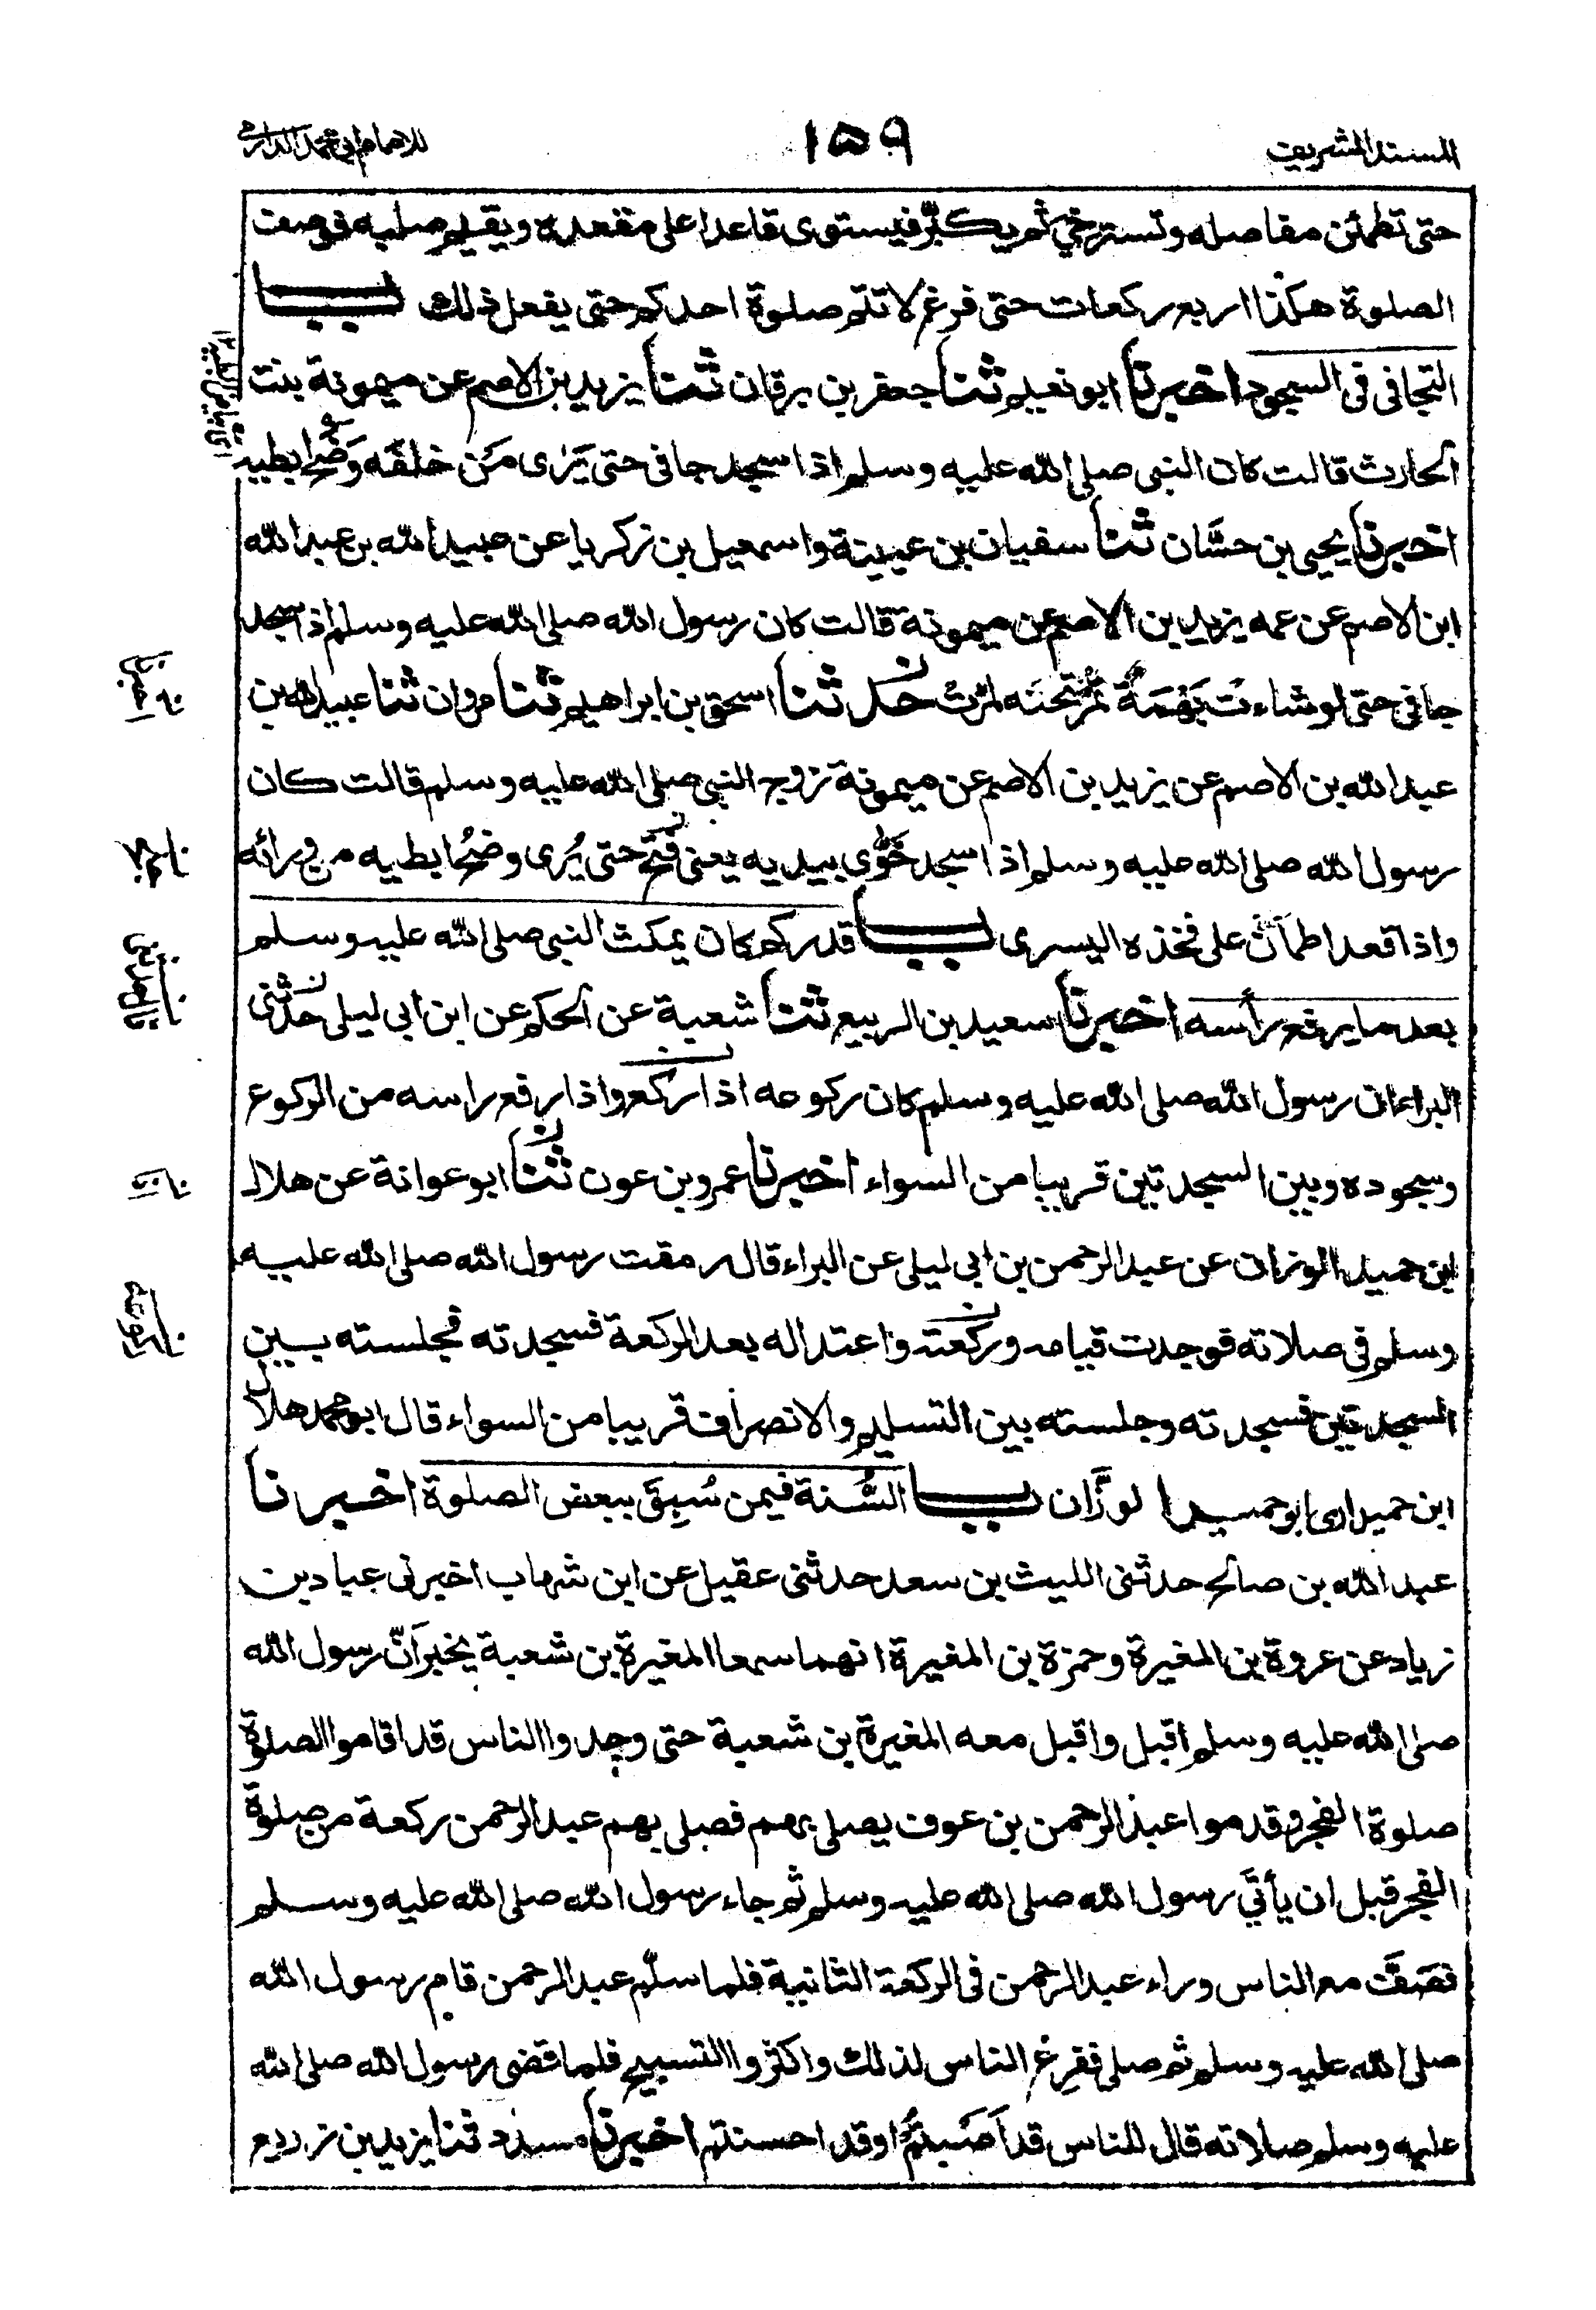 المسند الشريف ١٥٩ للامام ابي محمد الدارمي
حتى تطمئن مفاصله وتسترخي ثم يكبّر فيستوى قاعدا على مقعده ويقيم صلبه فوصف
الصلوة هكذا اربع ركعات حتى فرغ لا تتم صلوة احدكم حتى يفعل ذلك باب
التجافى فى السجود اخبرنا ابو نعيم ثنا جعفر بن برقان ثنا يزيد بن الاصم عن ميمونة بنت
الحارث قالت كان النبى صلى الله عليه وسلم اذا سجد جافى حتى يَرٰى مَن خلفَه وَضَح ابطيه
اخبرنا يحيى بن حسَّان ثنا سفيان بن عيينة واسمعيل بن زكريا عن عبيد الله بن عبد الله
ابن الاصم عن عمه يزيد بن الاصم عن ميمونة قالت كان رسول الله صلى الله عليه وسلم اذا سجد
جافى حتى لو شاءت بَهْمَةٌ تمُرّ تحتَه لمرّت حدثنا اسحق بن ابراهيم ثنا مروان ثنا عبيد الله بن
عبد الله بن الاصم عن يزيد بن الاصم عن ميمونة زوج النبى صلى الله عليه وسلم قالت كان
رسول الله صلى الله عليه وسلم اذا سجد خَوَّى بيديه يعنى فتح حتى يُرى وضحُ ابطيه من ورائه
واذا قعد اطمأنّ على فخذه اليسرى باب قدر كم كان يمكث النبى صلى الله عليه وسلم
بعد ما يرفع رأسه اخبرنا سعيد بن الربيع ثنا شعبة عن الحكم عن ابن ابى ليلى حدثنى
البراء ان رسول الله صلى الله عليه وسلم كان ركوعه اذا ركع واذا رفع راسه من الركوع
وسجوده وبين السجدتين قريبا من السواء اخبرنا عمرو بن عون ثنا ابو عوانة عن هلال
ابن حميد الوزان عن عبد الرحمن بن ابى ليلى عن البراء قال رمقت رسول الله صلى الله عليه
وسلم فى صلاته فوجدت قيامه وركعته واعتداله بعد الركعة فسجدته فجلسته بين
السجدتين فسجدته وجلسته بين التسليم والانصراف قريبا من السواء قال ابو محمد هلال
ابن حميد ارى ابو حميد الوزَّان باب السُّنة فيمن سُبِقَ ببعض الصلوة اخبرنا
عبد الله بن صالح حدثنى الليث بن سعد حدثنى عقيل عن ابن شهاب اخبرنى عباد بن
زياد عن عروة بن المغيرة وحمزة بن المغيرة انهما سمعا المغيرة بن شعبة يخبر اَنّ رسول الله
صلى الله عليه وسلم اقبل واقبل معه المغيرة بن شعبة حتى وجدوا الناس قد اقاموا الصلوة
صلوة الفجر وقدموا عبد الرحمن بن عوف يصلى بهم فصلى بهم عبد الرحمن ركعة من صلوة
الفجر قبل ان يأتيَ رسول الله صلى الله عليه وسلم ثم جاء رسول الله صلى الله عليه وسلم
فصَفَّ مع الناس وراء عبد الرحمن فى الركعة الثانية فلما سلّم عبد الرحمن قام رسول الله
صلى الله عليه وسلم ثم صلى ففزع الناس لذلك واكثروا التسبيح فلما قضى رسول الله صلى الله
عليه وسلم صلاته قال للناس قد اَصَبتُم او قد احسنتم اخبرنا مسدد ثنا يزيد بن زريع